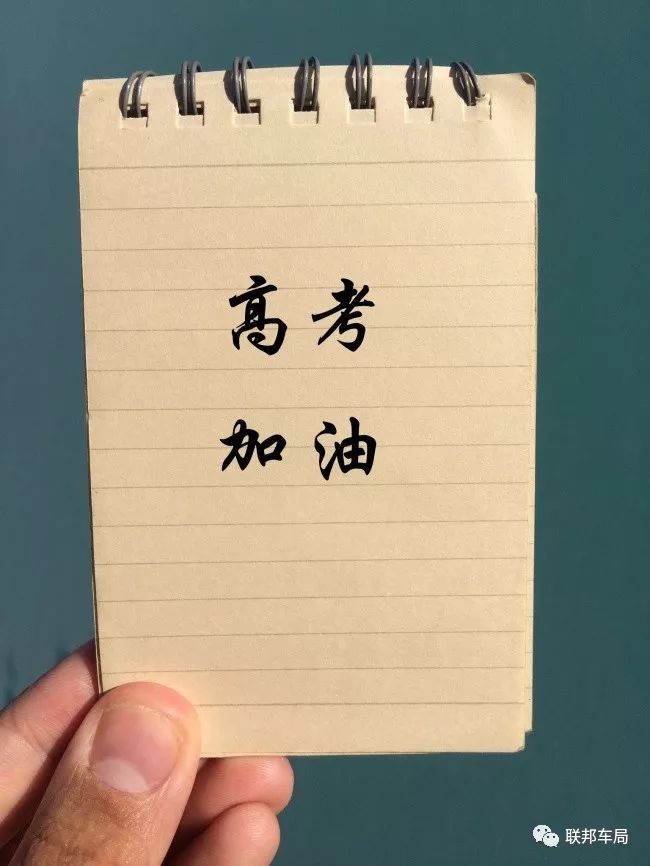 高考
加油
联邦车局